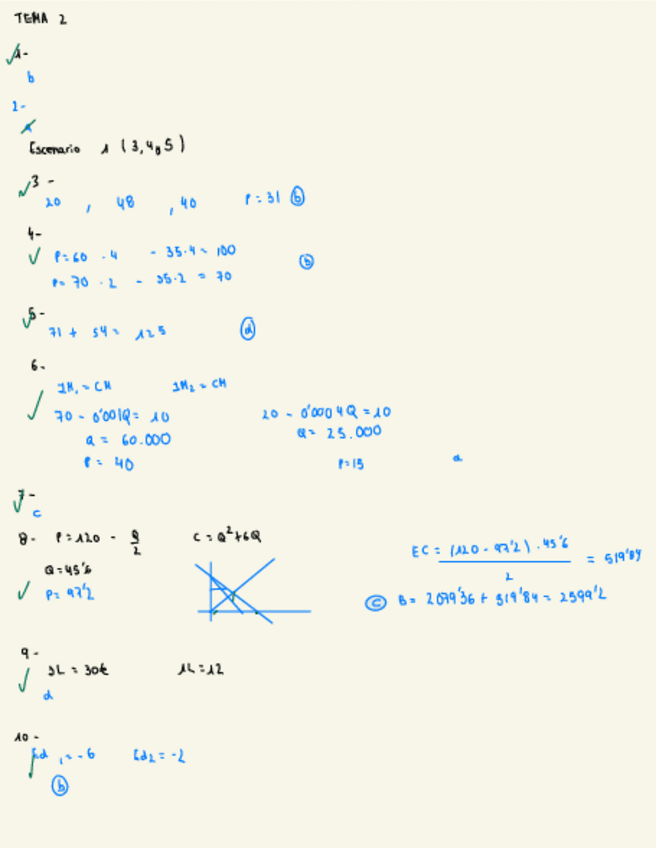 TEMA 2
1-
b
2-
a
Escenario 1 (3,4y5)
3-
20 , 48 , 40 P=31 b
4-
P=60 · 4 - 35·4 = 100
P= 70 · 2 - 35·2 = 70 b
5-
71 + 54 = 125 d
6-
IM₁ = CM IM₂ = CM
70 - 0'001Q = 10 20 - 0'0004Q = 10
Q = 60.000 Q = 25.000
P = 40 P=15 a
7-
c
8- P=120 - Q/2 C=Q²+6Q
Q=45'6
P= 97'2
EC = (120 - 97'2) · 45'6 / 2 = 519'84
c B= 2079'36 + 519'84 = 2599'2
9-
3L = 30€ 1L=12
d
10-
Ed₁ = -6 Ed₂ = -2
b